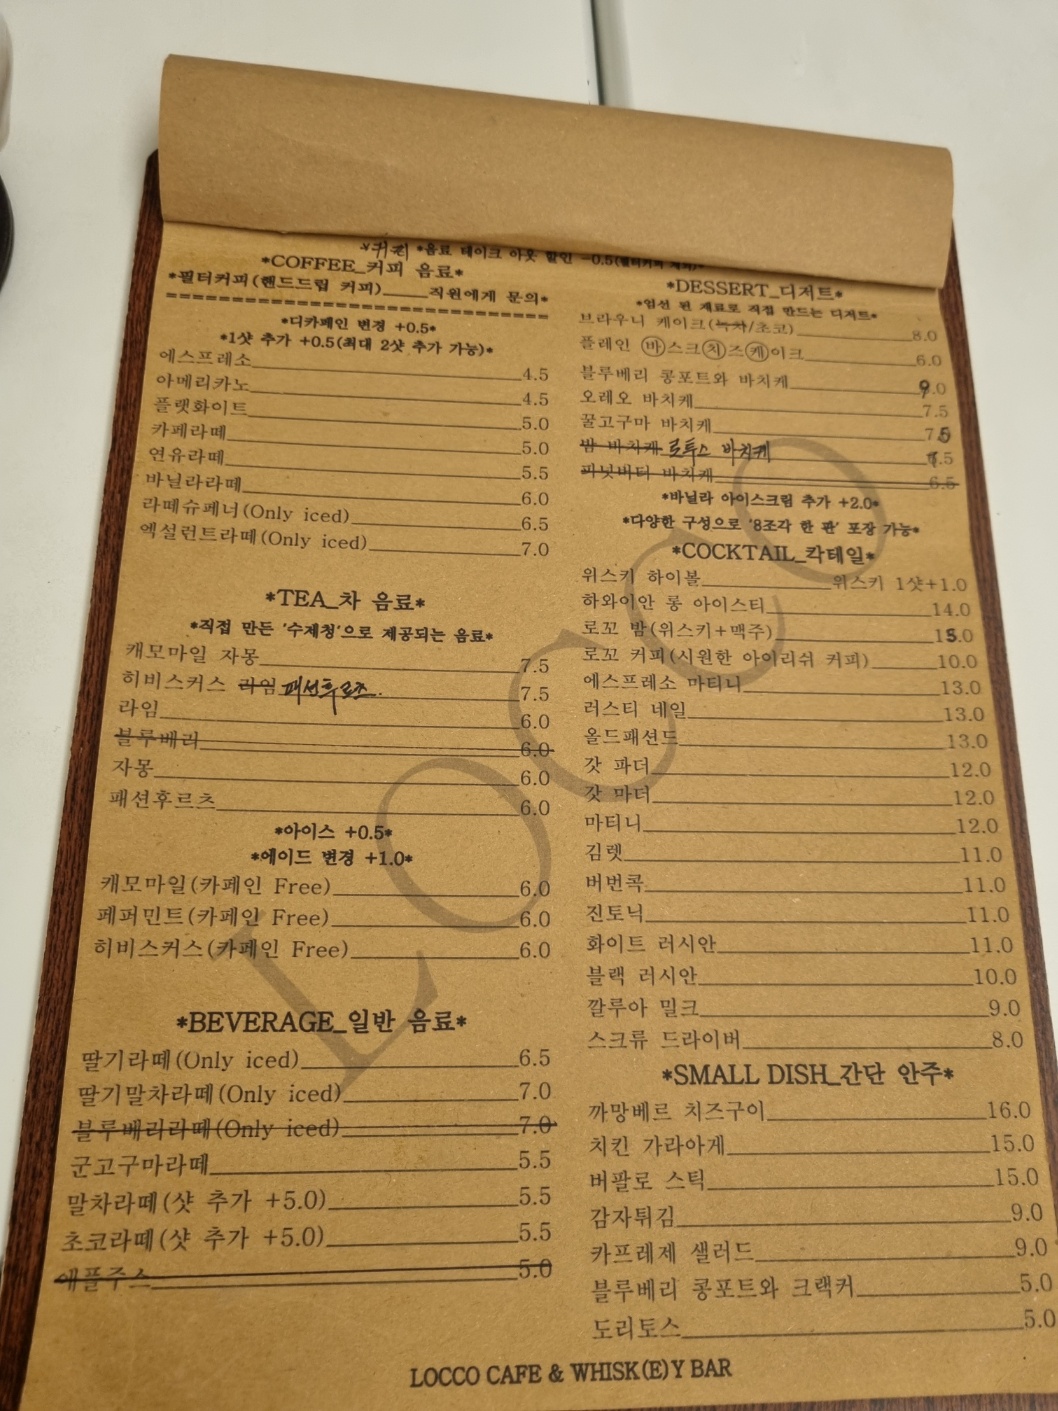 *음료 테이크 아웃 할인 -0.5(필터커피 제외)*
*COFFEE_커피 음료*
*필터커피(핸드드립 커피)____직원에게 문의*
*디카페인 변경 +0.5*
*1샷 추가 +0.5(최대 2샷 추가 가능)*
에스프레소 4.5
아메리카노 4.5
플랫화이트 5.0
카페라떼 5.0
연유라떼 5.5
바닐라라떼 6.0
라떼슈페너(Only iced) 6.5
엑설런트라떼(Only iced) 7.0
*TEA_차 음료*
*직접 만든 '수제청'으로 제공되는 음료*
캐모마일 자몽 7.5
히비스커스 라임 패션후르츠. 7.5
라임 6.0
블루베리 6.0
자몽 6.0
패션후르츠 6.0
*아이스 +0.5*
*에이드 변경 +1.0*
캐모마일(카페인 Free) 6.0
페퍼민트(카페인 Free) 6.0
히비스커스(카페인 Free) 6.0
*BEVERAGE_일반 음료*
딸기라떼(Only iced) 6.5
딸기말차라떼(Only iced) 7.0
블루베리라떼(Only iced) 7.0
군고구마라떼 5.5
말차라떼(샷 추가 +5.0) 5.5
초코라떼(샷 추가 +5.0) 5.5
애플주스 5.0
*DESSERT_디저트*
*엄선 된 재료로 직접 만드는 디저트*
브라우니 케이크(녹차/초코) 8.0
플레인 바스크치즈케이크 6.0
블루베리 콩포트와 바치케 9.0
오레오 바치케 7.5
꿀고구마 바치케 7.5
밤 바치케 로투스 바치케 7.5
피넛버터 바치케 6.5
*바닐라 아이스크림 추가 +2.0*
*다양한 구성으로 '8조각 한 판' 포장 가능*
*COCKTAIL_칵테일*
위스키 하이볼 위스키 1샷+1.0
하와이안 롱 아이스티 14.0
로꼬 밤(위스키+맥주) 15.0
로꼬 커피(시원한 아이리쉬 커피) 10.0
에스프레소 마티니 13.0
러스티 네일 13.0
올드패션드 13.0
갓 파더 12.0
갓 마더 12.0
마티니 12.0
김렛 11.0
버번콕 11.0
진토닉 11.0
화이트 러시안 11.0
블랙 러시안 10.0
깔루아 밀크 9.0
스크류 드라이버 8.0
*SMALL DISH_간단 안주*
까망베르 치즈구이 16.0
치킨 가라아게 15.0
버팔로 스틱 15.0
감자튀김 9.0
카프레제 샐러드 9.0
블루베리 콩포트와 크랙커 5.0
도리토스 5.0
LOCCO
LOCCO CAFE & WHISK(E)Y BAR